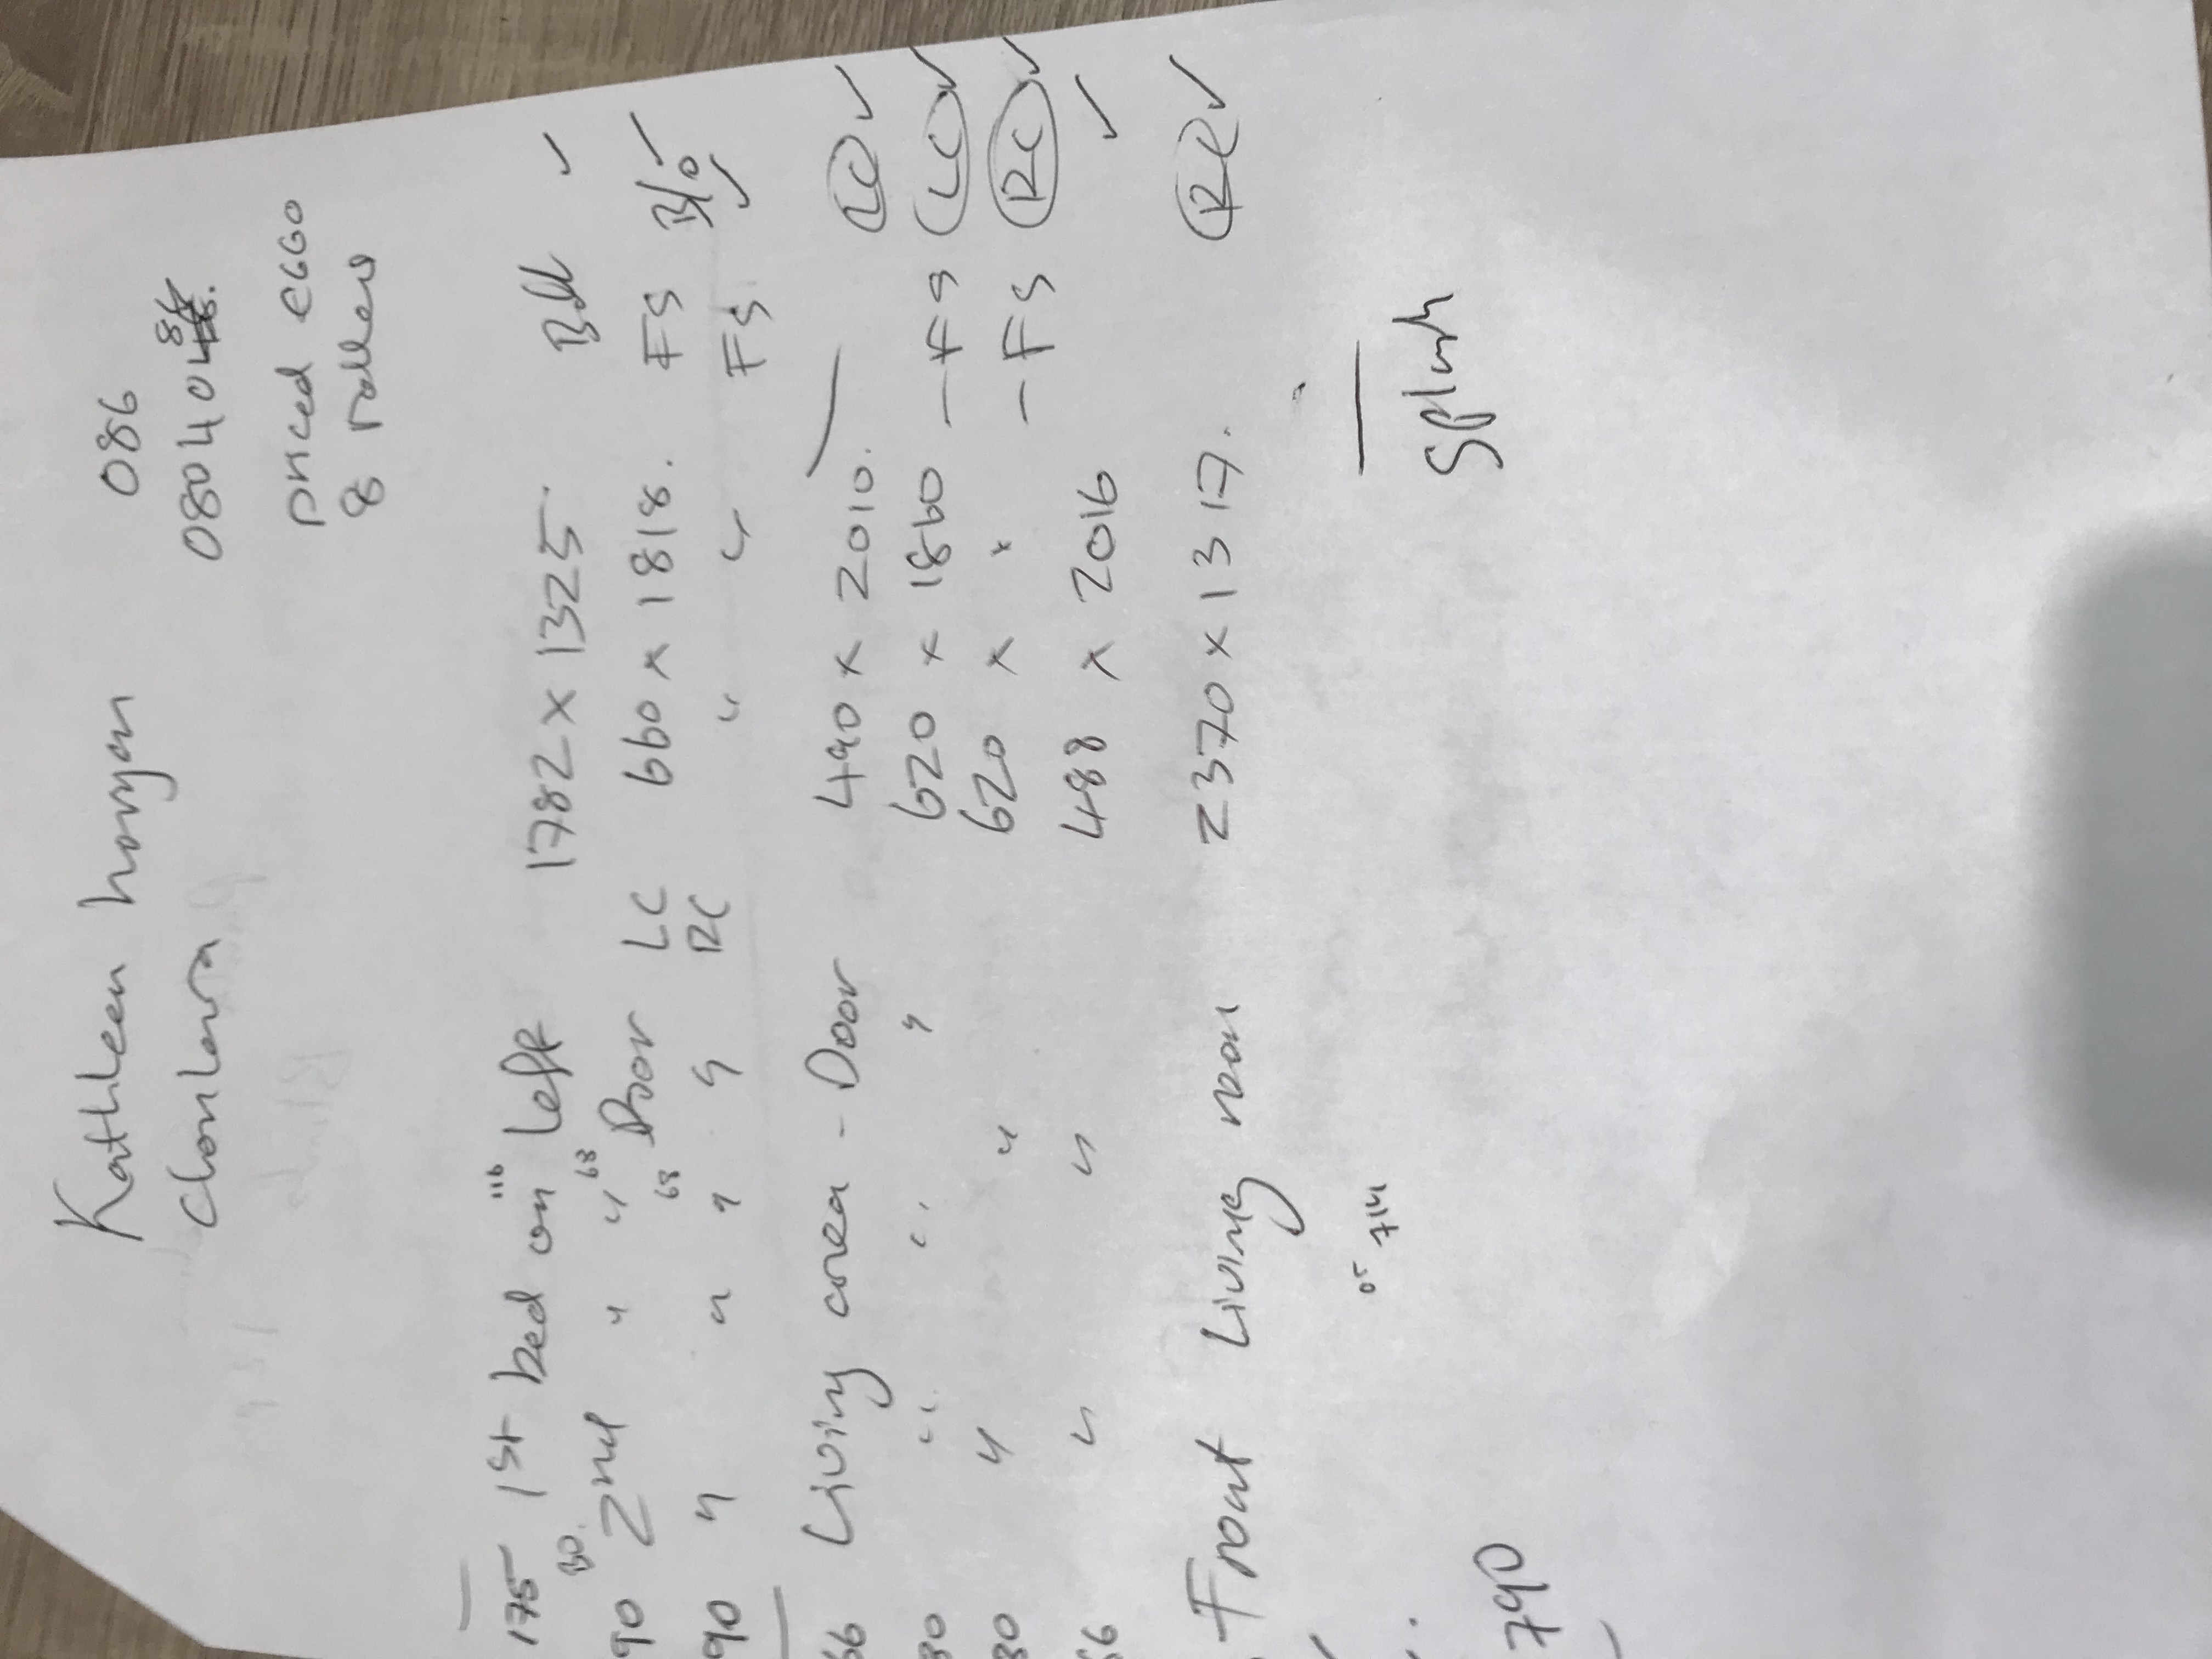 Kathleen horgan 086
Clonlara 0804048
priced €660
8 rollers
175 1st bed on left 1782 x 1325. ✓
116
BO 63
90 2nd " " Door LC 660 x 1818. FS B/o ✓
63
90 " " " " RC " " FS. ✓
66 Living area - Door 490 x 2010. LC ✓
80 " " " 620 x 1860 - FS LC ✓
80 " " 620 x " - FS RC ✓
56 " " 488 x 2016 ✓
Front Living room 2370 x 1317. RC ✓
790